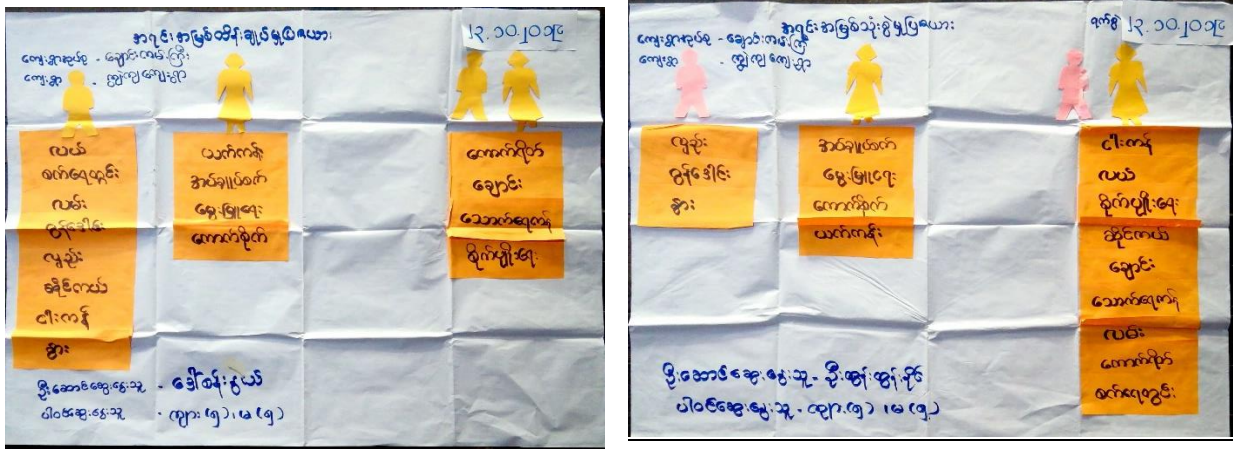 အရင်းအမြစ်ထိန်းချုပ်မှုပြဇယား
၂၃.၁၀.၂၀၁၄
ကျေးရွာအုပ်စု - ချောင်းကမ်းကြီး
ကျေးရွာ - ကျွဲကျကျေးရွာ
လယ်
စက်ရေတွင်း
လမ်း
ထွန်ဒေါင်း
လှည်း
ဆိုင်ကယ်
ငါးကန်
နွား
ယက်ကန်း
အပ်ချုပ်စက်
မွေးမြူရေး
ကောက်စိုက်
ကောက်ရိတ်
ချောင်း
သောက်ရေကန်
စိုက်ပျိုးရေး
ဦးဆောင်ဆွေးနွေးသူ - ဒေါ်စန်းနွယ်
ပါဝင်ဆွေးနွေးသူ - ကျား(၅)၊ မ(၅)
အရင်းအမြစ်သုံးစွဲမှုပြဇယား
ရက်စွဲ ၂၃.၁၀.၂၀၁၄
ကျေးရွာအုပ်စု - ချောင်းကမ်းကြီး
ကျေးရွာ - ကျွဲကျကျေးရွာ
လှည်း
ထွန်ဒေါင်း
နွား
အပ်ချုပ်စက်
မွေးမြူရေး
ကောက်စိုက်
ယက်ကန်း
ငါးကန်
လယ်
စိုက်ပျိုးရေး
ဆိုင်ကယ်
ချောင်း
သောက်ရေကန်
လမ်း
ကောက်ရိတ်
စက်ရေတွင်း
ဦးဆောင်ဆွေးနွေးသူ - ဦးထွန်းထွန်းနိုင်
ပါဝင်ဆွေးနွေးသူ - ကျား(၅)၊ မ(၅)